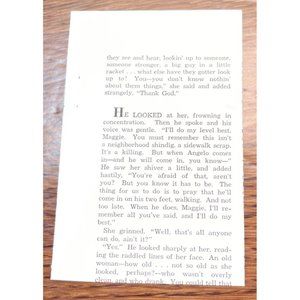 they see and hear, lookin' up to someone,
someone stronger, a big guy in a little
racket . . . what else have they gutter look
up to? You—you don't know nothin'
about them things," she said and added
strangely, "Thank God."
HE LOOKED at her, frowning in
concentration. Then he spoke and his
voice was gentle. "I'll do my level best,
Maggie. You must remember this isn't
a neighborhood shindig, a sidewalk scrap.
It's a killing. But when Angelo comes
in—and he will come in, you know—"
He saw her shiver a little, and added
hastily, "You're afraid of that, aren't
you? But you know it has to be. The
thing for us to do is to pray that he'll
come in on his two feet, walking. And
not too late. When he does, Maggie, I'll re-
member all you've said, and I'll do my
best."
She grinned. "Well, that's all anyone
can do, ain't it?"
"Yes." He looked sharply at her, read-
ing the raddled lines of her face. An old
woman—how old . . . not so old as she
looked, perhaps?—who wasn't overly
clean, and who drank. You could tell that